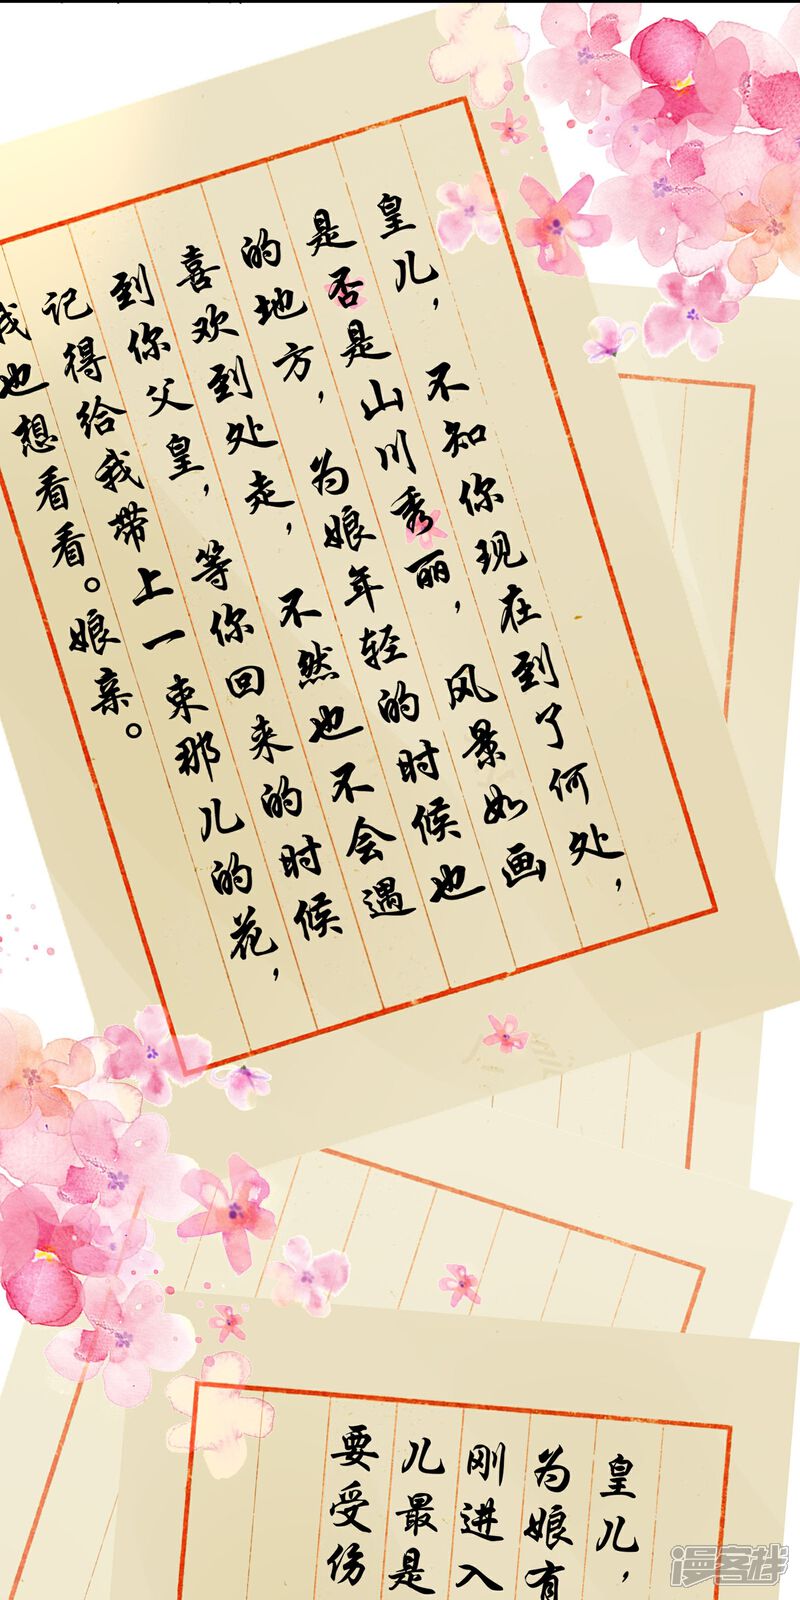 皇儿，不知你现在到了何处，
是否是山川秀丽，风景如画
的地方，为娘年轻的时候也
喜欢到处走，不然也不会遇
到你父皇，等你回来的时候
记得给我带上一束那儿的花，
我也想看看。娘亲。
皇儿，
为娘有
刚进入
儿最是
要受伤
漫客栈